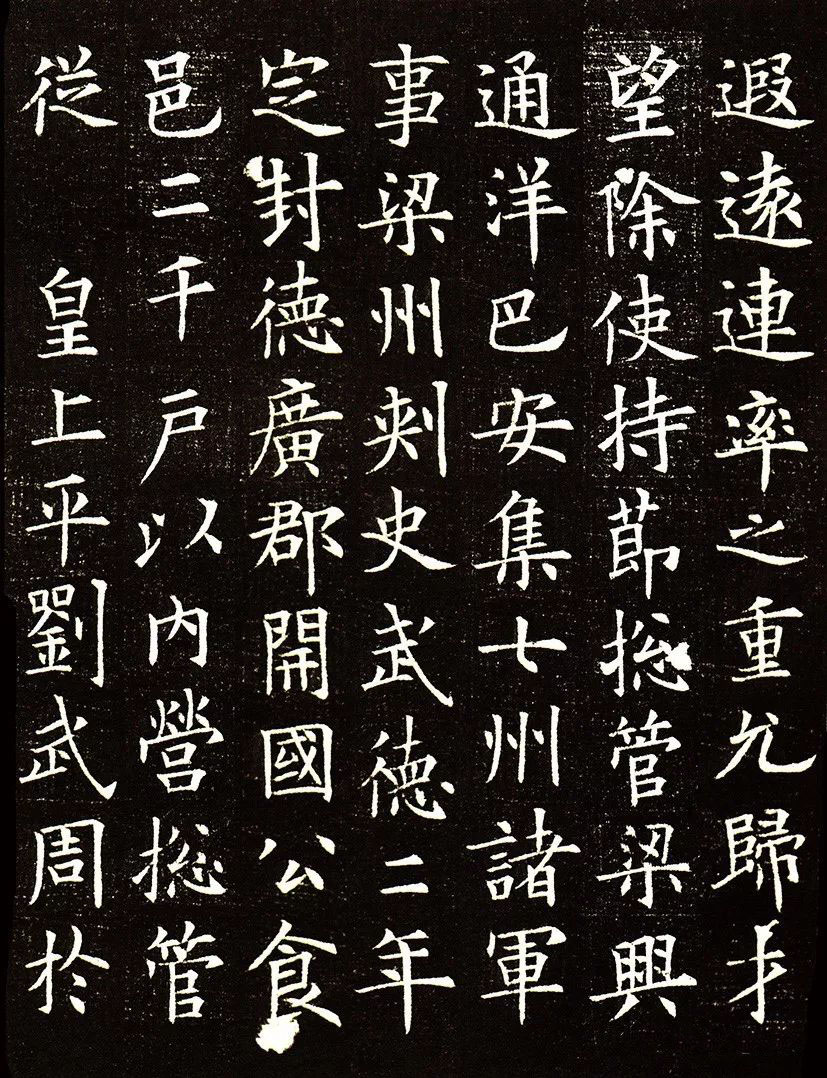 遐遠連率之重允歸才
望除使持節揔管梁興
通洋巴安集七州諸軍
事梁州刾史武德二年
定封德廣郡開國公食
邑二千戶以內營揔管
從 皇上平劉武周於